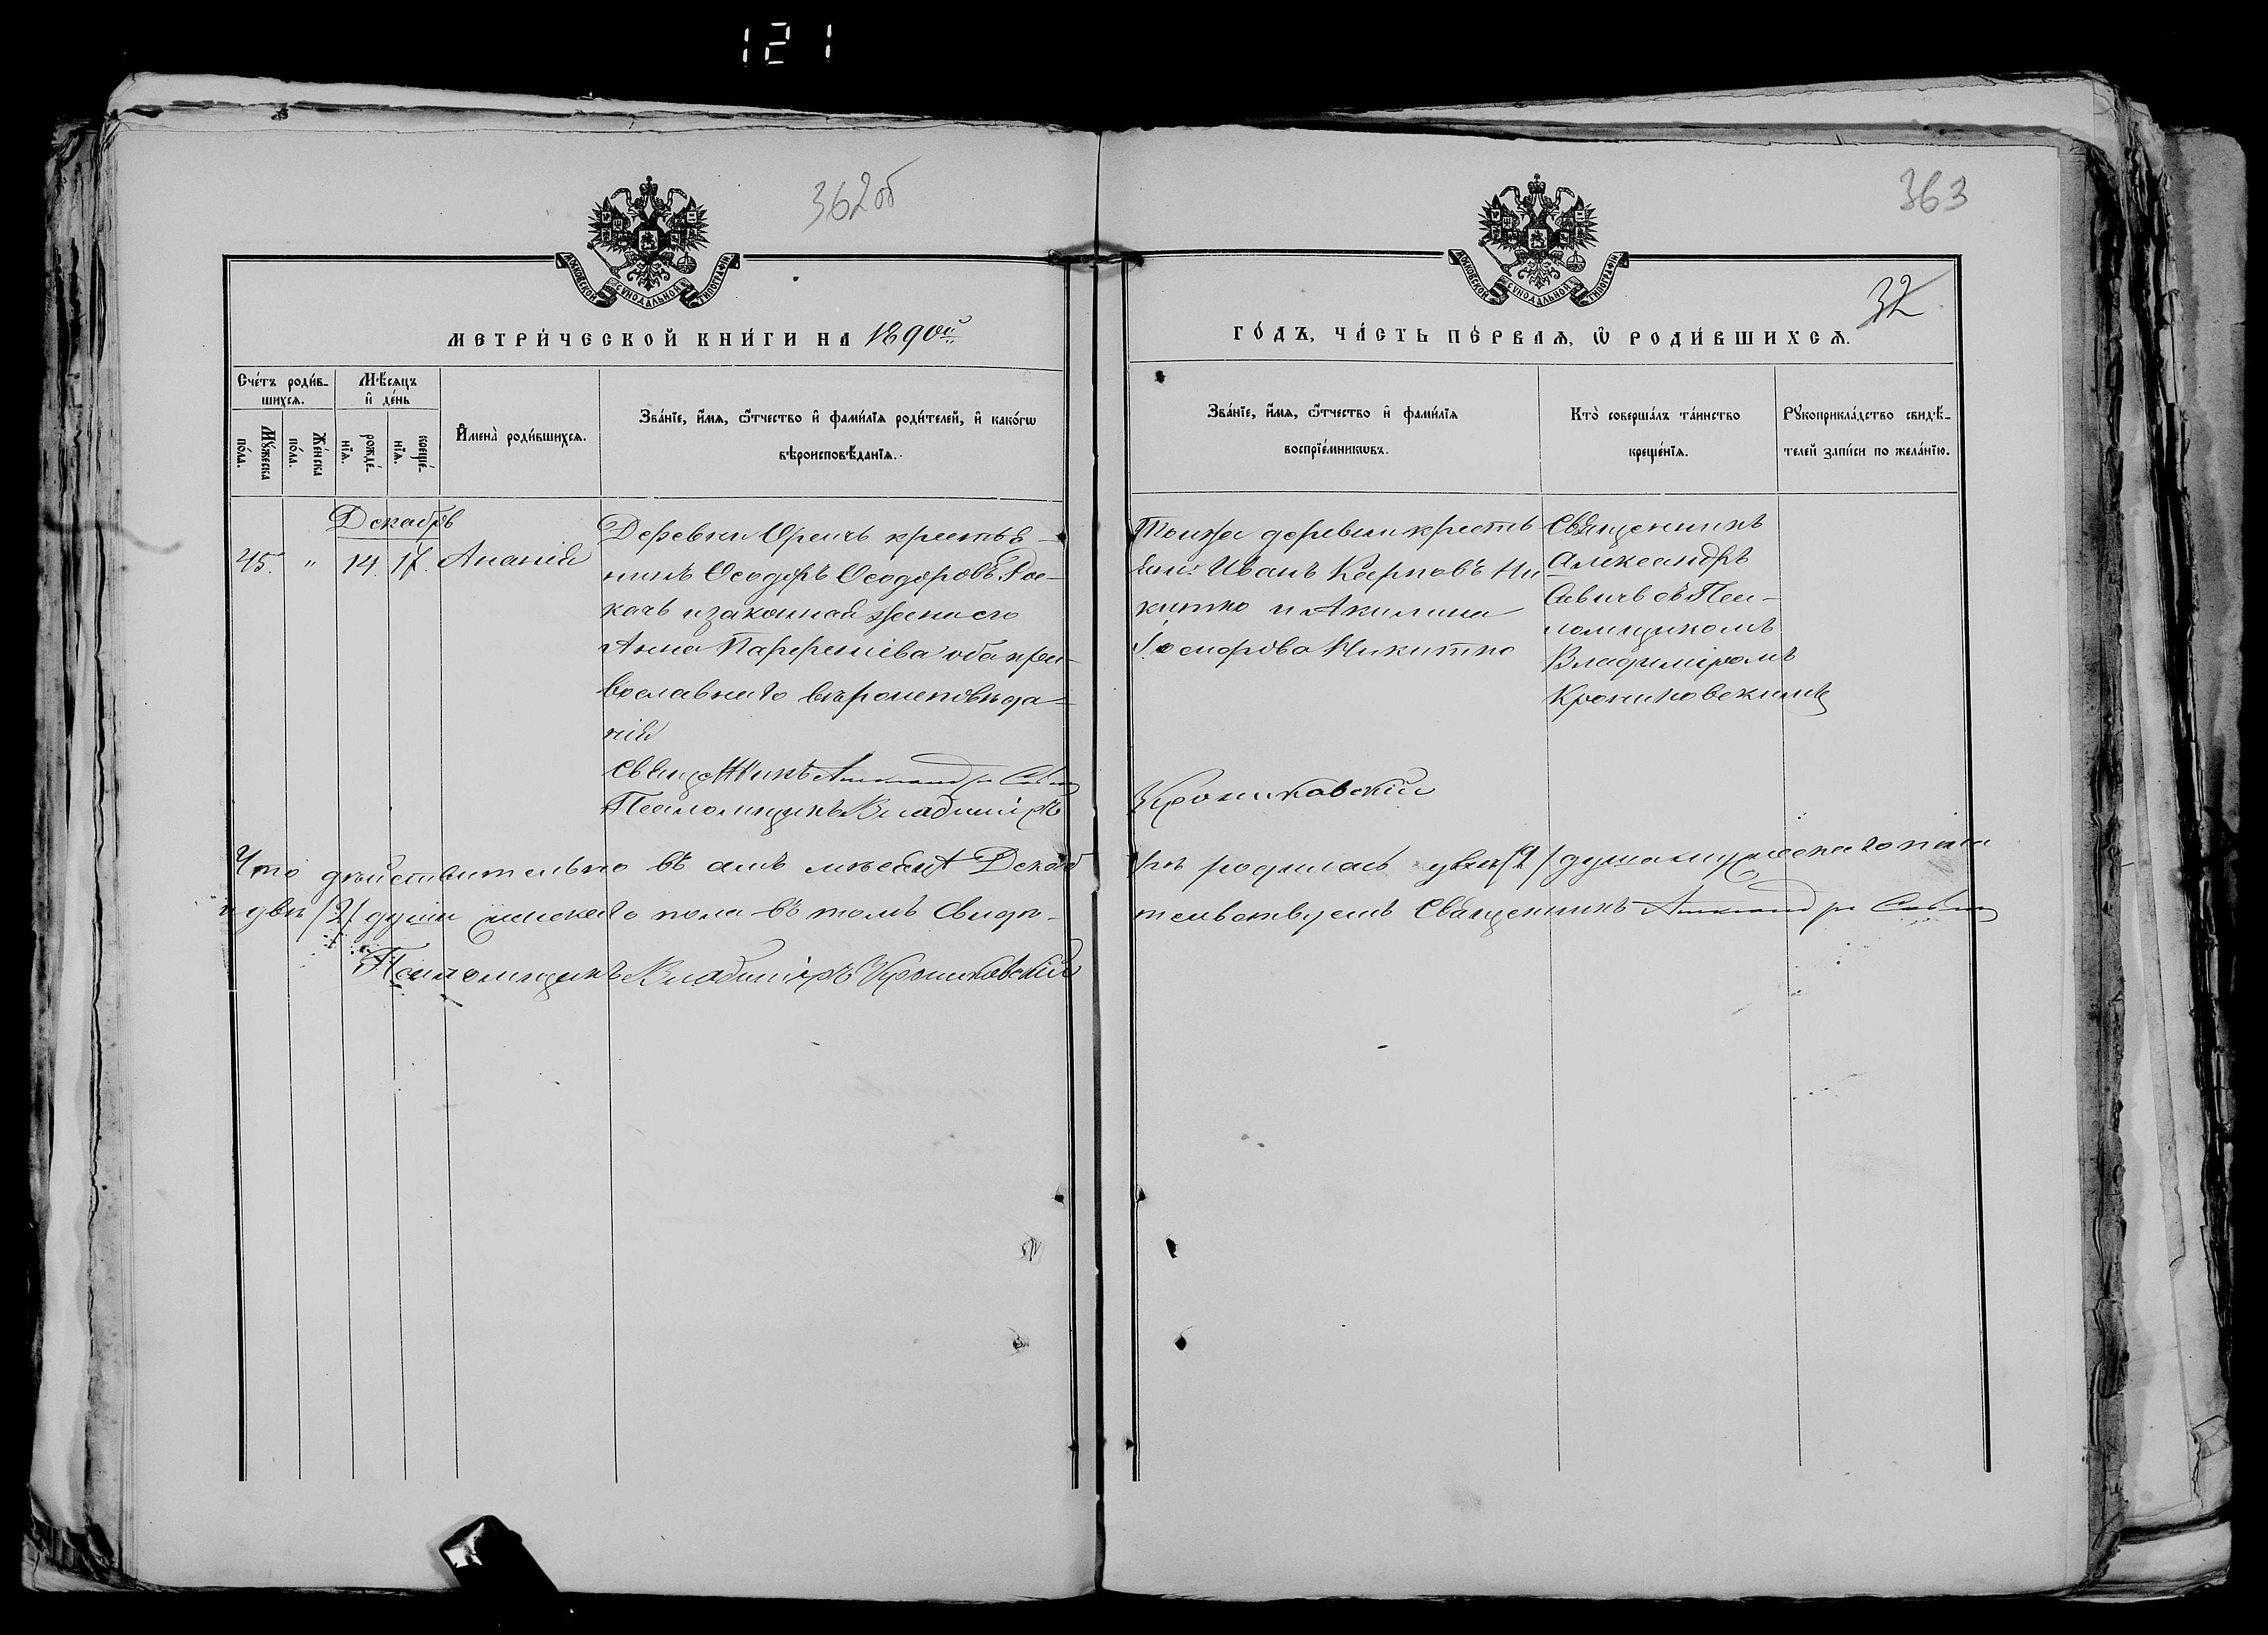 121
362об
363
32
МОСКОВСКОЙ СѴНОДАЛЬНОЙ ТИПОГРАФІИ
МОСКОВСКОЙ СѴНОДАЛЬНОЙ ТИПОГРАФІИ
МЕТРИ́ЧЕСКОЙ КНИ́ГИ НА 1890ый
ГО́ДЪ, ЧА́СТЬ ПЕ́РВАѦ, Ѽ РОДИ́ВШИХСѦ.
Сче́тъ роди́в-
шихсѧ.
Мꙋ́жеска
по́ла.
Же́нска
по́ла.
Мѣ́сѧцъ
и҆ де́нь
рожде́-
нїѧ.
креще́-
нїѧ.
И҆мена̀ роди́вшихсѧ.
Зва́нїе, и҆́мѧ, ѻ҆́тчество и҆ фами́лїѧ роди́телей, и҆ како́гѡ
вѣроисповѣ́данїѧ.
Зва́нїе, и҆́мѧ, ѻ҆́тчество и҆ фами́лїѧ
воспрїе́мникѡвъ.
Кто̀ соверша́лъ та́инство
креще́нїѧ.
Рꙋкоприкла́дство свидѣ́-
телей за́писи по жела́нїю.
Декабрь
45. " 14. 17. Ананій
Деревни Оречъ крестья-
нинъ Ѳеодоръ Ѳеодоровъ
качъ и законная жена его
Анна Парфеніева оба пра-
вославнаго вѣроисповѣда-
нія
Священникъ Александръ Савичъ
Псаломщикъ Владиміръ
Тойже деревни кресть-
яни: Иванъ Карповъ Ни
китко и Акилина
Никитко
Священникъ
Александръ
Савичъ съ Пса-
ломщикомъ
Владиміромъ
Крониковскимъ
Крониковскій
Что дѣйствительно въ семъ мѣсяцѣ Декаб
рѣ родилась двѣ /2/ душа мужескаго пола
и двѣ /2/ души женскаго пола въ томъ свидѣ-
тельствуемъ Священникъ Александръ Савичъ
Псаломщикъ Владиміръ Крониковскій